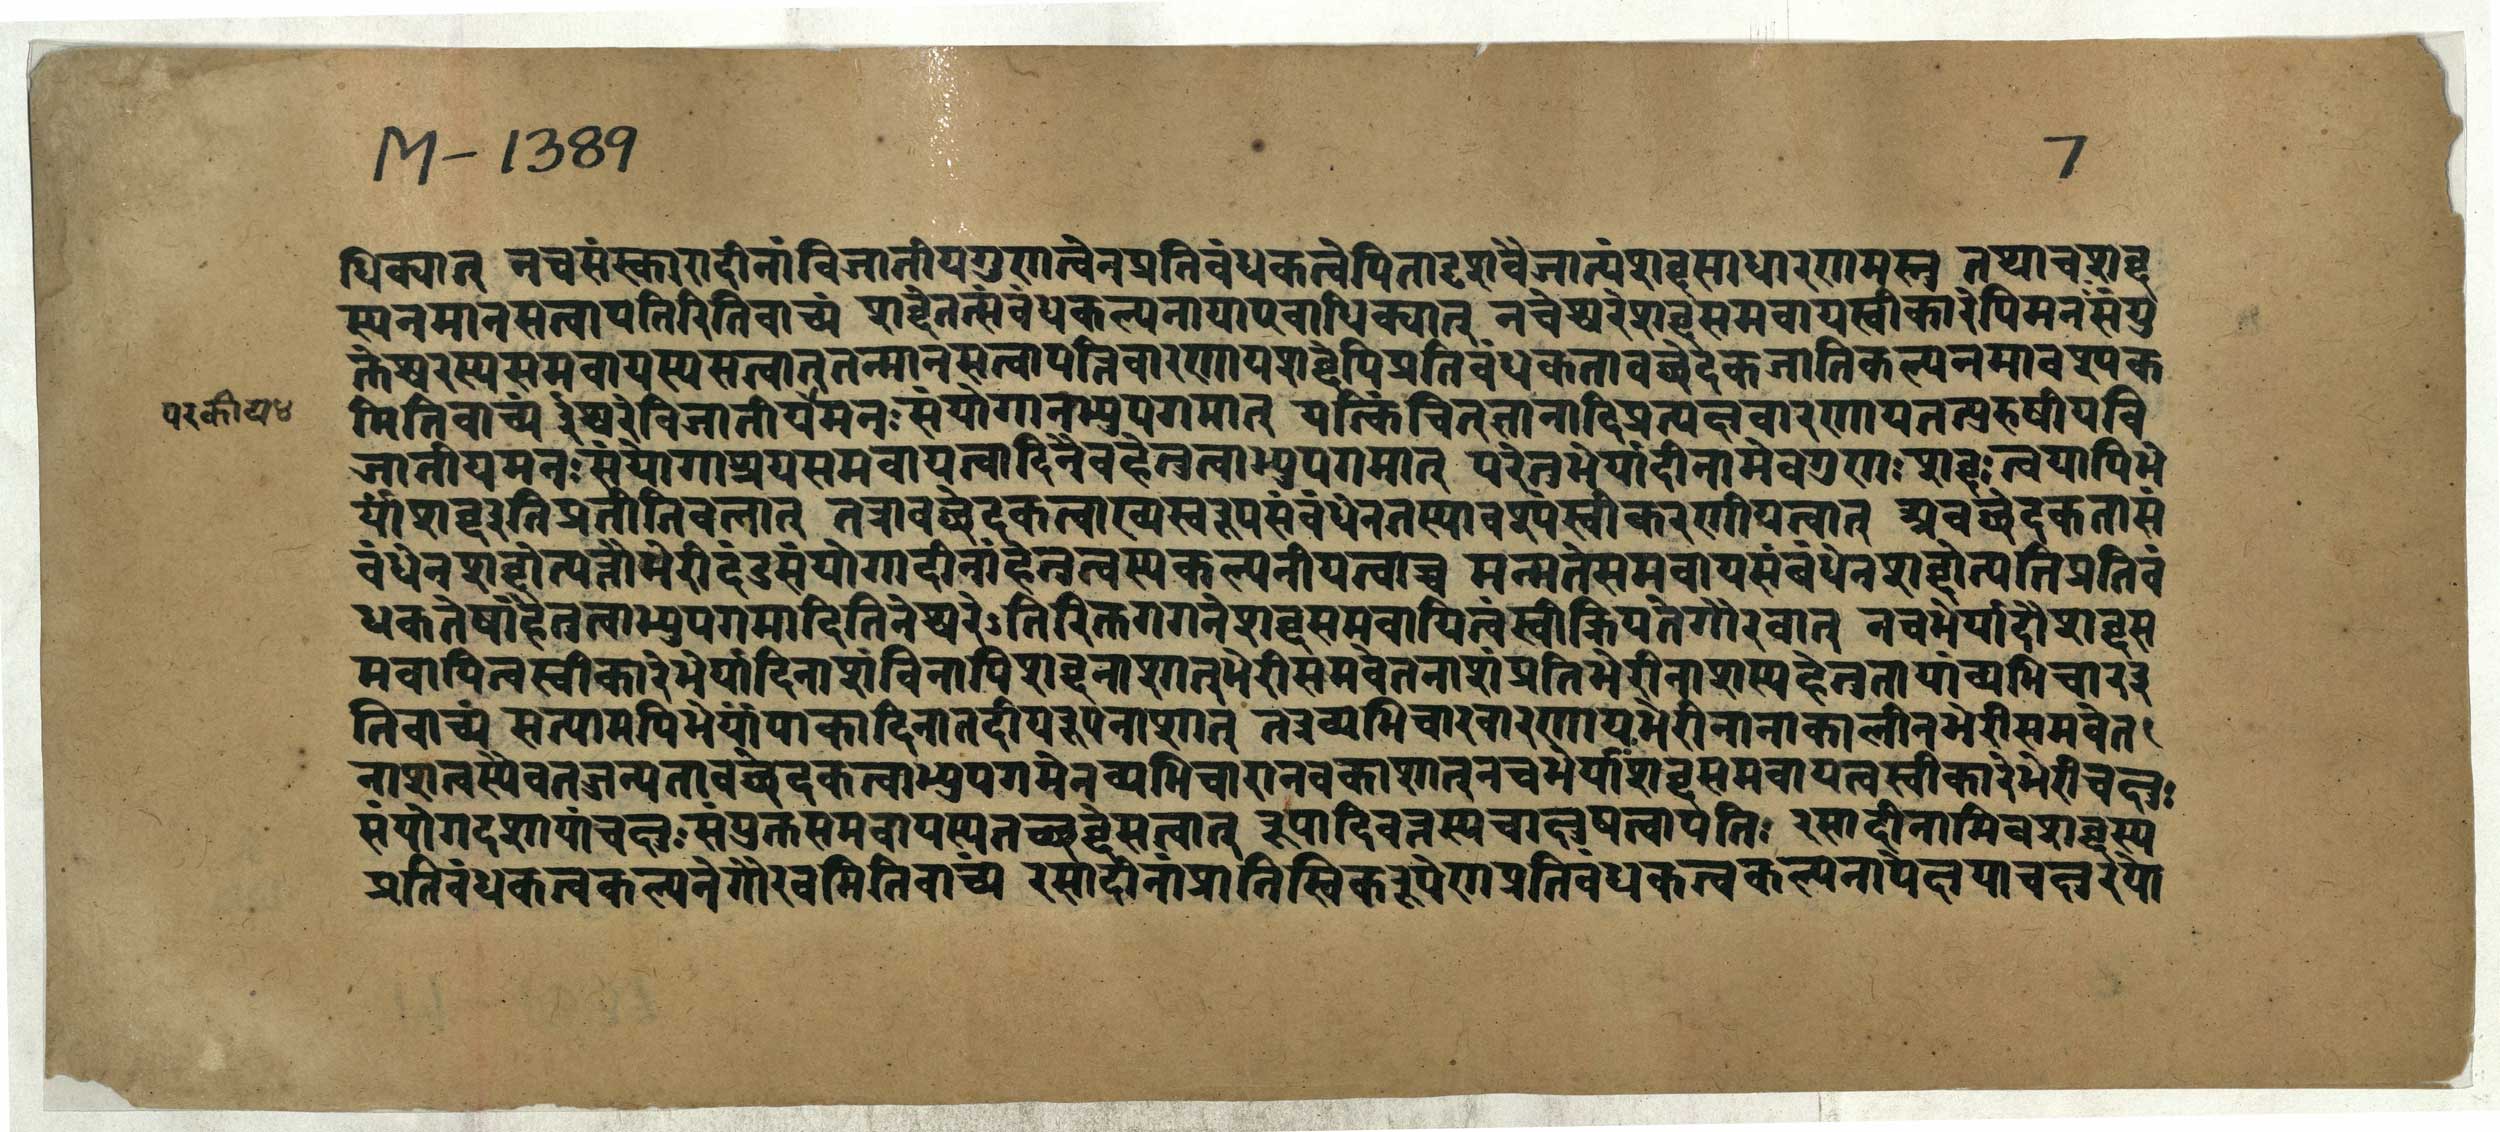 M-1389
7
धिक्यात् नचसंस्कारादीनांविजातीयगुणत्वेनप्रतिबंधकत्वेपितादृशवैजात्यंशब्दसाधारणमस्तु तथाचशब्द
स्यनमानसत्वापतिरितिवाच्यं शब्देतत्संबंधकल्पनायाएवाधिक्यात् नचेश्वरेशब्दसमवायस्वीकारेपिमनःसंयु
क्तेश्वरस्यसमवायस्यसत्वात्तन्मानसत्वापत्तिवारणायशब्देपिप्रतिबंधकतावच्छेदकजातिकल्पनमावश्यक
परकीय४
मितिवाच्यं ईश्वरेविजातीयमनःसंयोगानभ्युपगमात् यत्किंचित्ज्ञानादिप्रत्यक्षवारणायतत्पुरुषीयवि
जातीयमनःसंयोगाश्रयसमवायत्वादिनैवहेतुत्वाभ्युपगमात् परेतुभेर्यादीनामेवगुणःशब्दःत्वयापिभे
र्यांशब्दइतिप्रतीतिबलात् तत्रावच्छेदकत्वाख्यस्वरूपसंबंधेनतस्यावश्यंस्वीकरणीयत्वात् अवच्छेदकतासं
बंधेनशब्दोत्पत्तौभेरीदंडसंयोगादीनांहेतुत्वस्यकल्पनीयत्वाच्च मन्मतेसमवायसंबंधेनशब्दोत्पतिप्रतिबं
धकतेषांहेतुत्वाभ्युपगमादितिनेश्वरेऽतिरिक्तगगनेशब्दसमवायित्वंस्वीक्रियतेगौरवात् नचभेर्यादौशब्दस
मवायित्वस्वीकारेभेर्यादिनाशंविनापिशब्दनाशात्भेरीसमवेतनाशंप्रतिभेरीनाशस्यहेतुतायांव्यभिचारइ
तिवाच्यं सत्यामपिभेर्यांपाकादिनातदीयरूपनाशात् तत्रव्यभिचारवारणायभेरीनानाकालीनभेरीसमवेत
नाशत्वस्यैवतज्जन्यतावच्छेदकत्वाभ्युपगमेनव्यभिचारानवकाशात्नचभेर्यांशब्दसमवायत्वस्वीकारेभेरीचक्षुः
संयोगदशायांचक्षुःसंयुक्तसमवायस्यतच्छब्देसत्वात् रूपादिवत्तस्यचाक्षुषत्वापतिः रसादीनामिवशब्दस्य
प्रतिबंधकत्वकल्पनेगौरवमितिवाच्यं रसादीनांप्रातिस्विकरूपेणप्रतिबंधकत्वकल्पनापेक्षयाचक्षुरयो